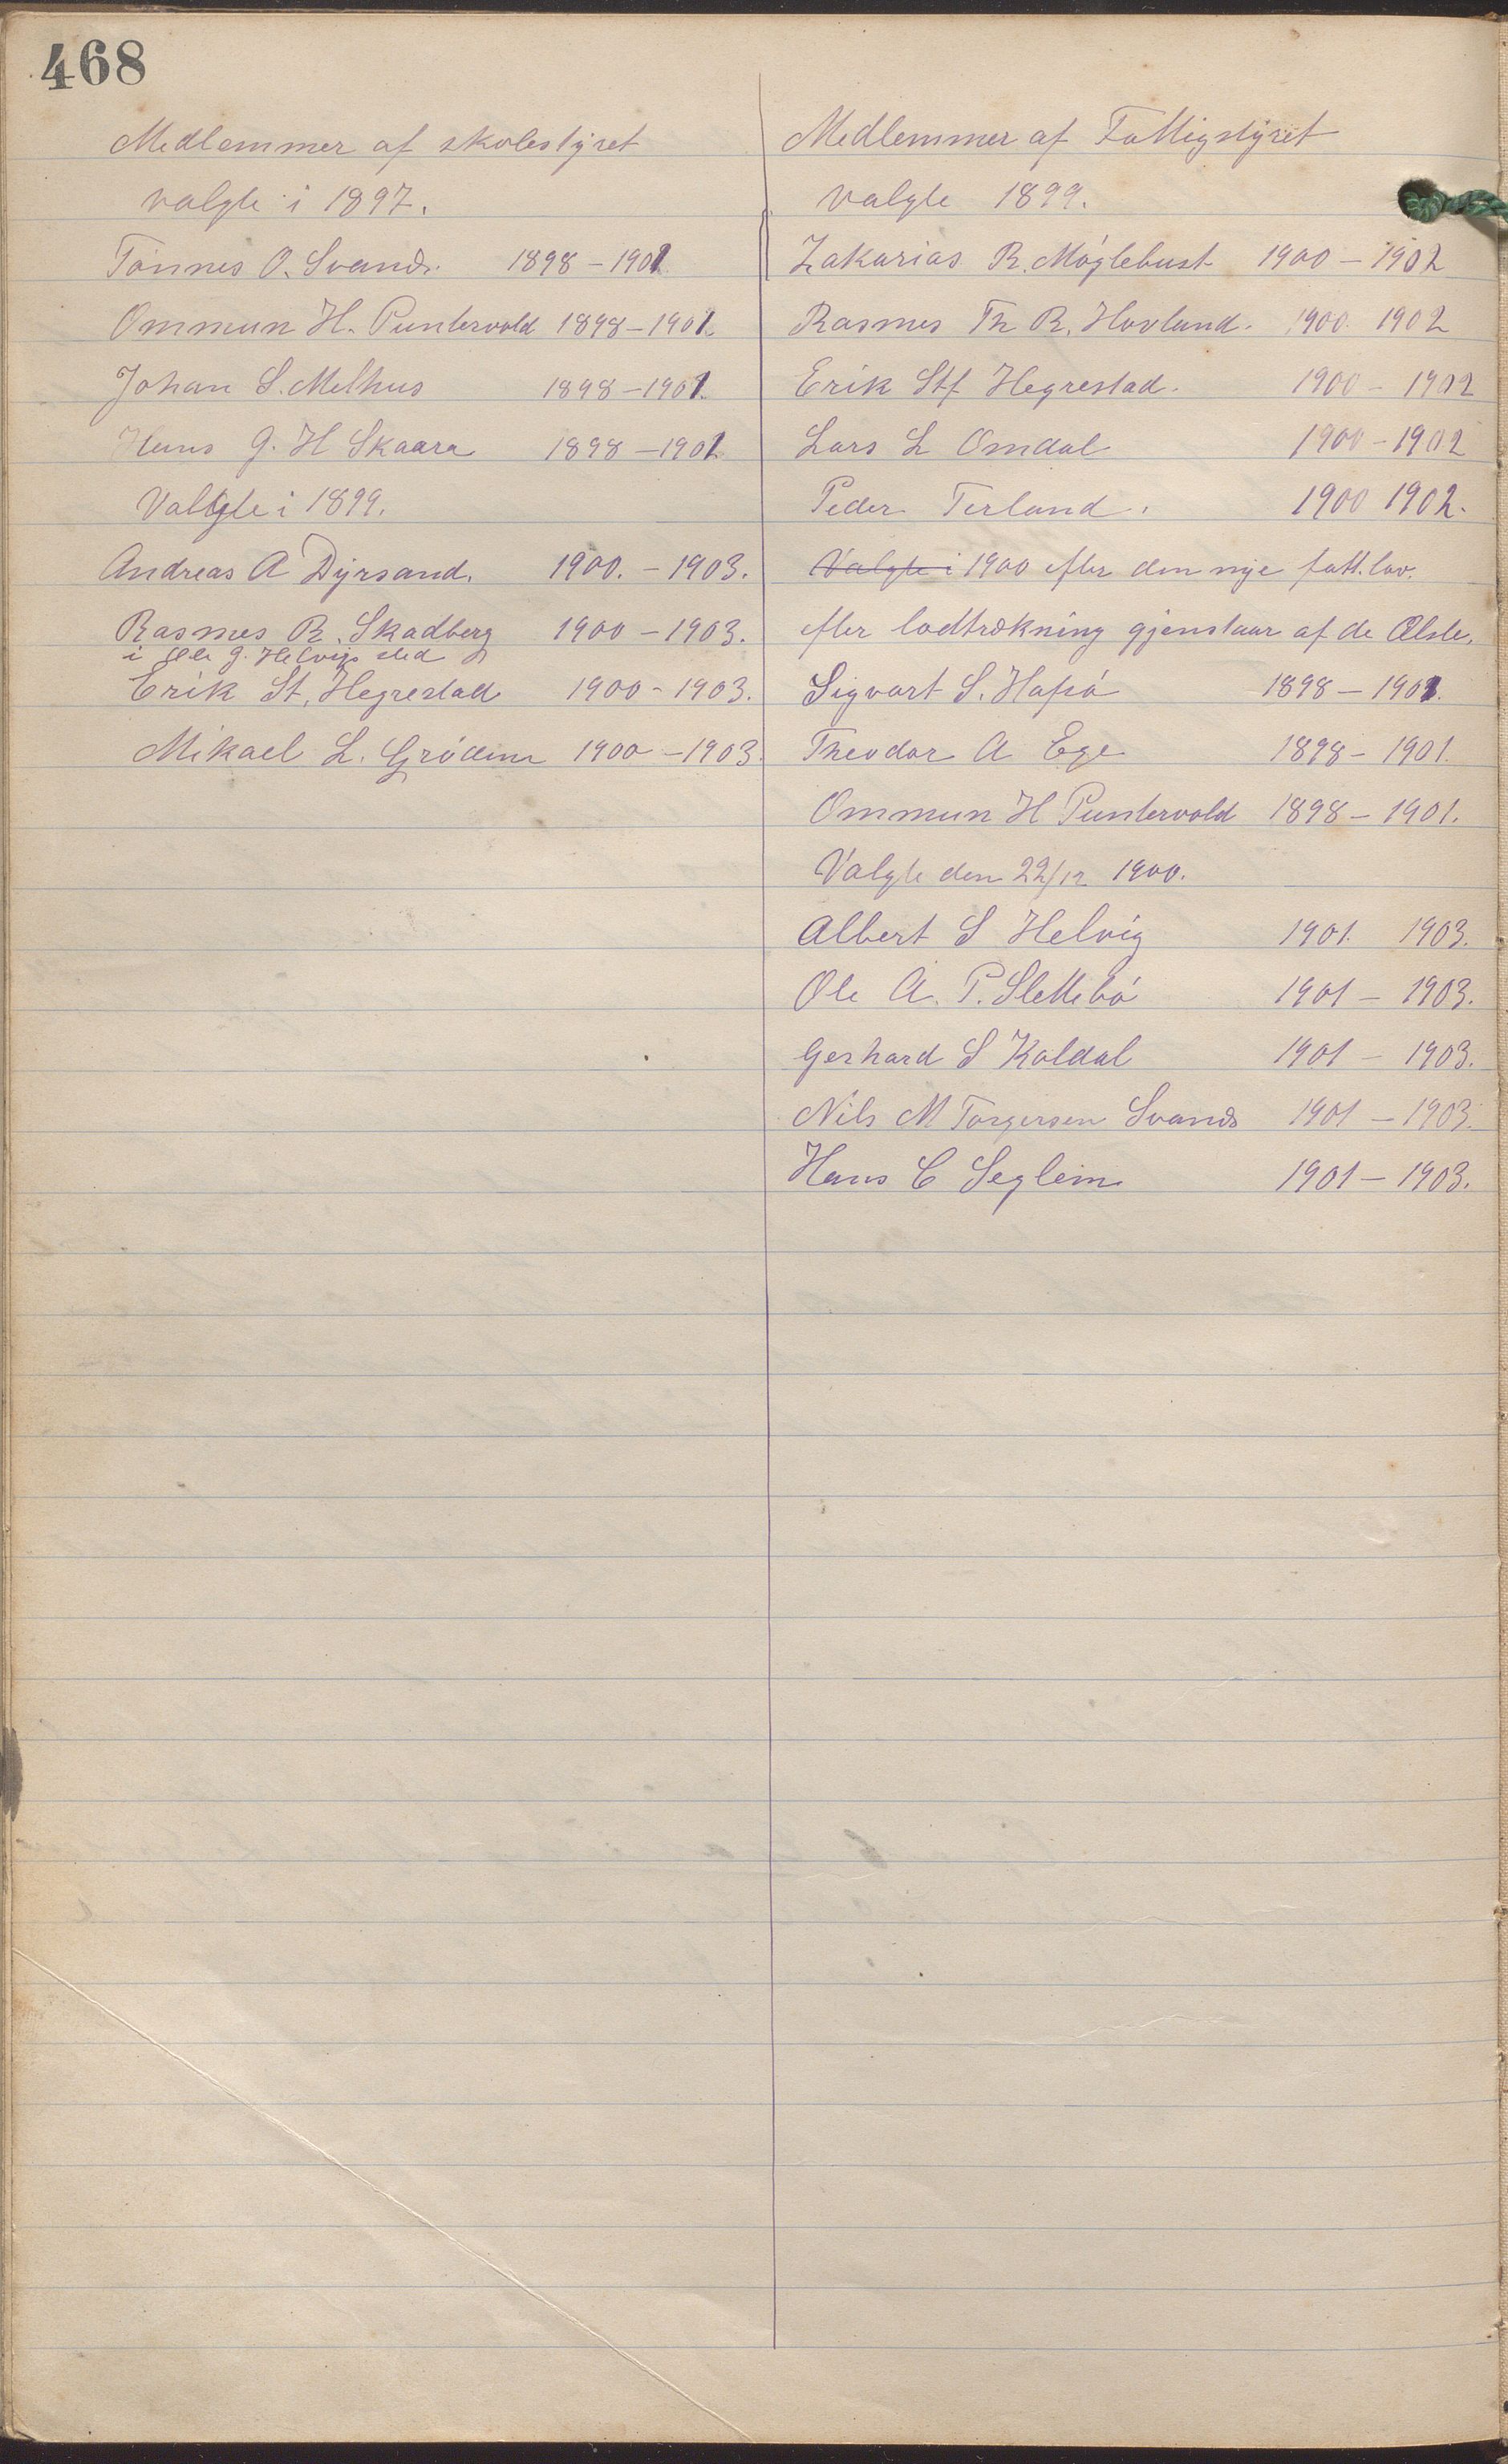 468
Medlemmer af skolestyret
valgte i 1897.
Tönnes O. Svands. 1898 - 1901
Ommun H. Puntervold 1898 - 1901
Johan S. Melhus 1898 - 1901.
Hans G. H Skaara 1898 - 1901
Valgte i 1899.
Andreas A Dyrsand. 1900. - 1903.
Rasmus R. Skadberg 1900 - 1903.
i Ole G. Helvigs sted
Erik St. Hegrestad 1900 - 1903.
Mikael L. Grödem 1900 - 1903.
Medlemmer af Fattigstyret
valgte 1899.
Zakarias R. Möglebust 1900 - 1902
Rasmus Th R. Hovland. 1900. 1902
Erik Stf Hegrestad. 1900 - 1902
Lars L Omdal 1900 - 1902
Peder Terland. 1900 1902.
Valgte i 1900 efter den nye fatt. lov.
efter lodtrækning gjenstaar af de Ælste,
Sigvart S. Hafsö 1898 - 1901.
Theodor A Ege 1898 - 1901.
Ommun H Puntervold 1898 - 1901.
Valgte den 22/12 1900.
Albert S Helvig 1901. 1903.
Ole A. P. Slettebö 1901 - 1903.
Gerhard S Koldal 1901 - 1903.
Nils M Torgersen Svands 1901 - 1903.
Hans C Seglem 1901 - 1903.